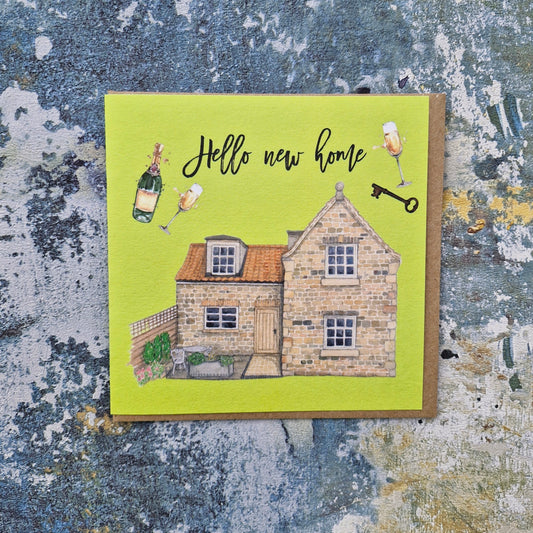 Hello new home